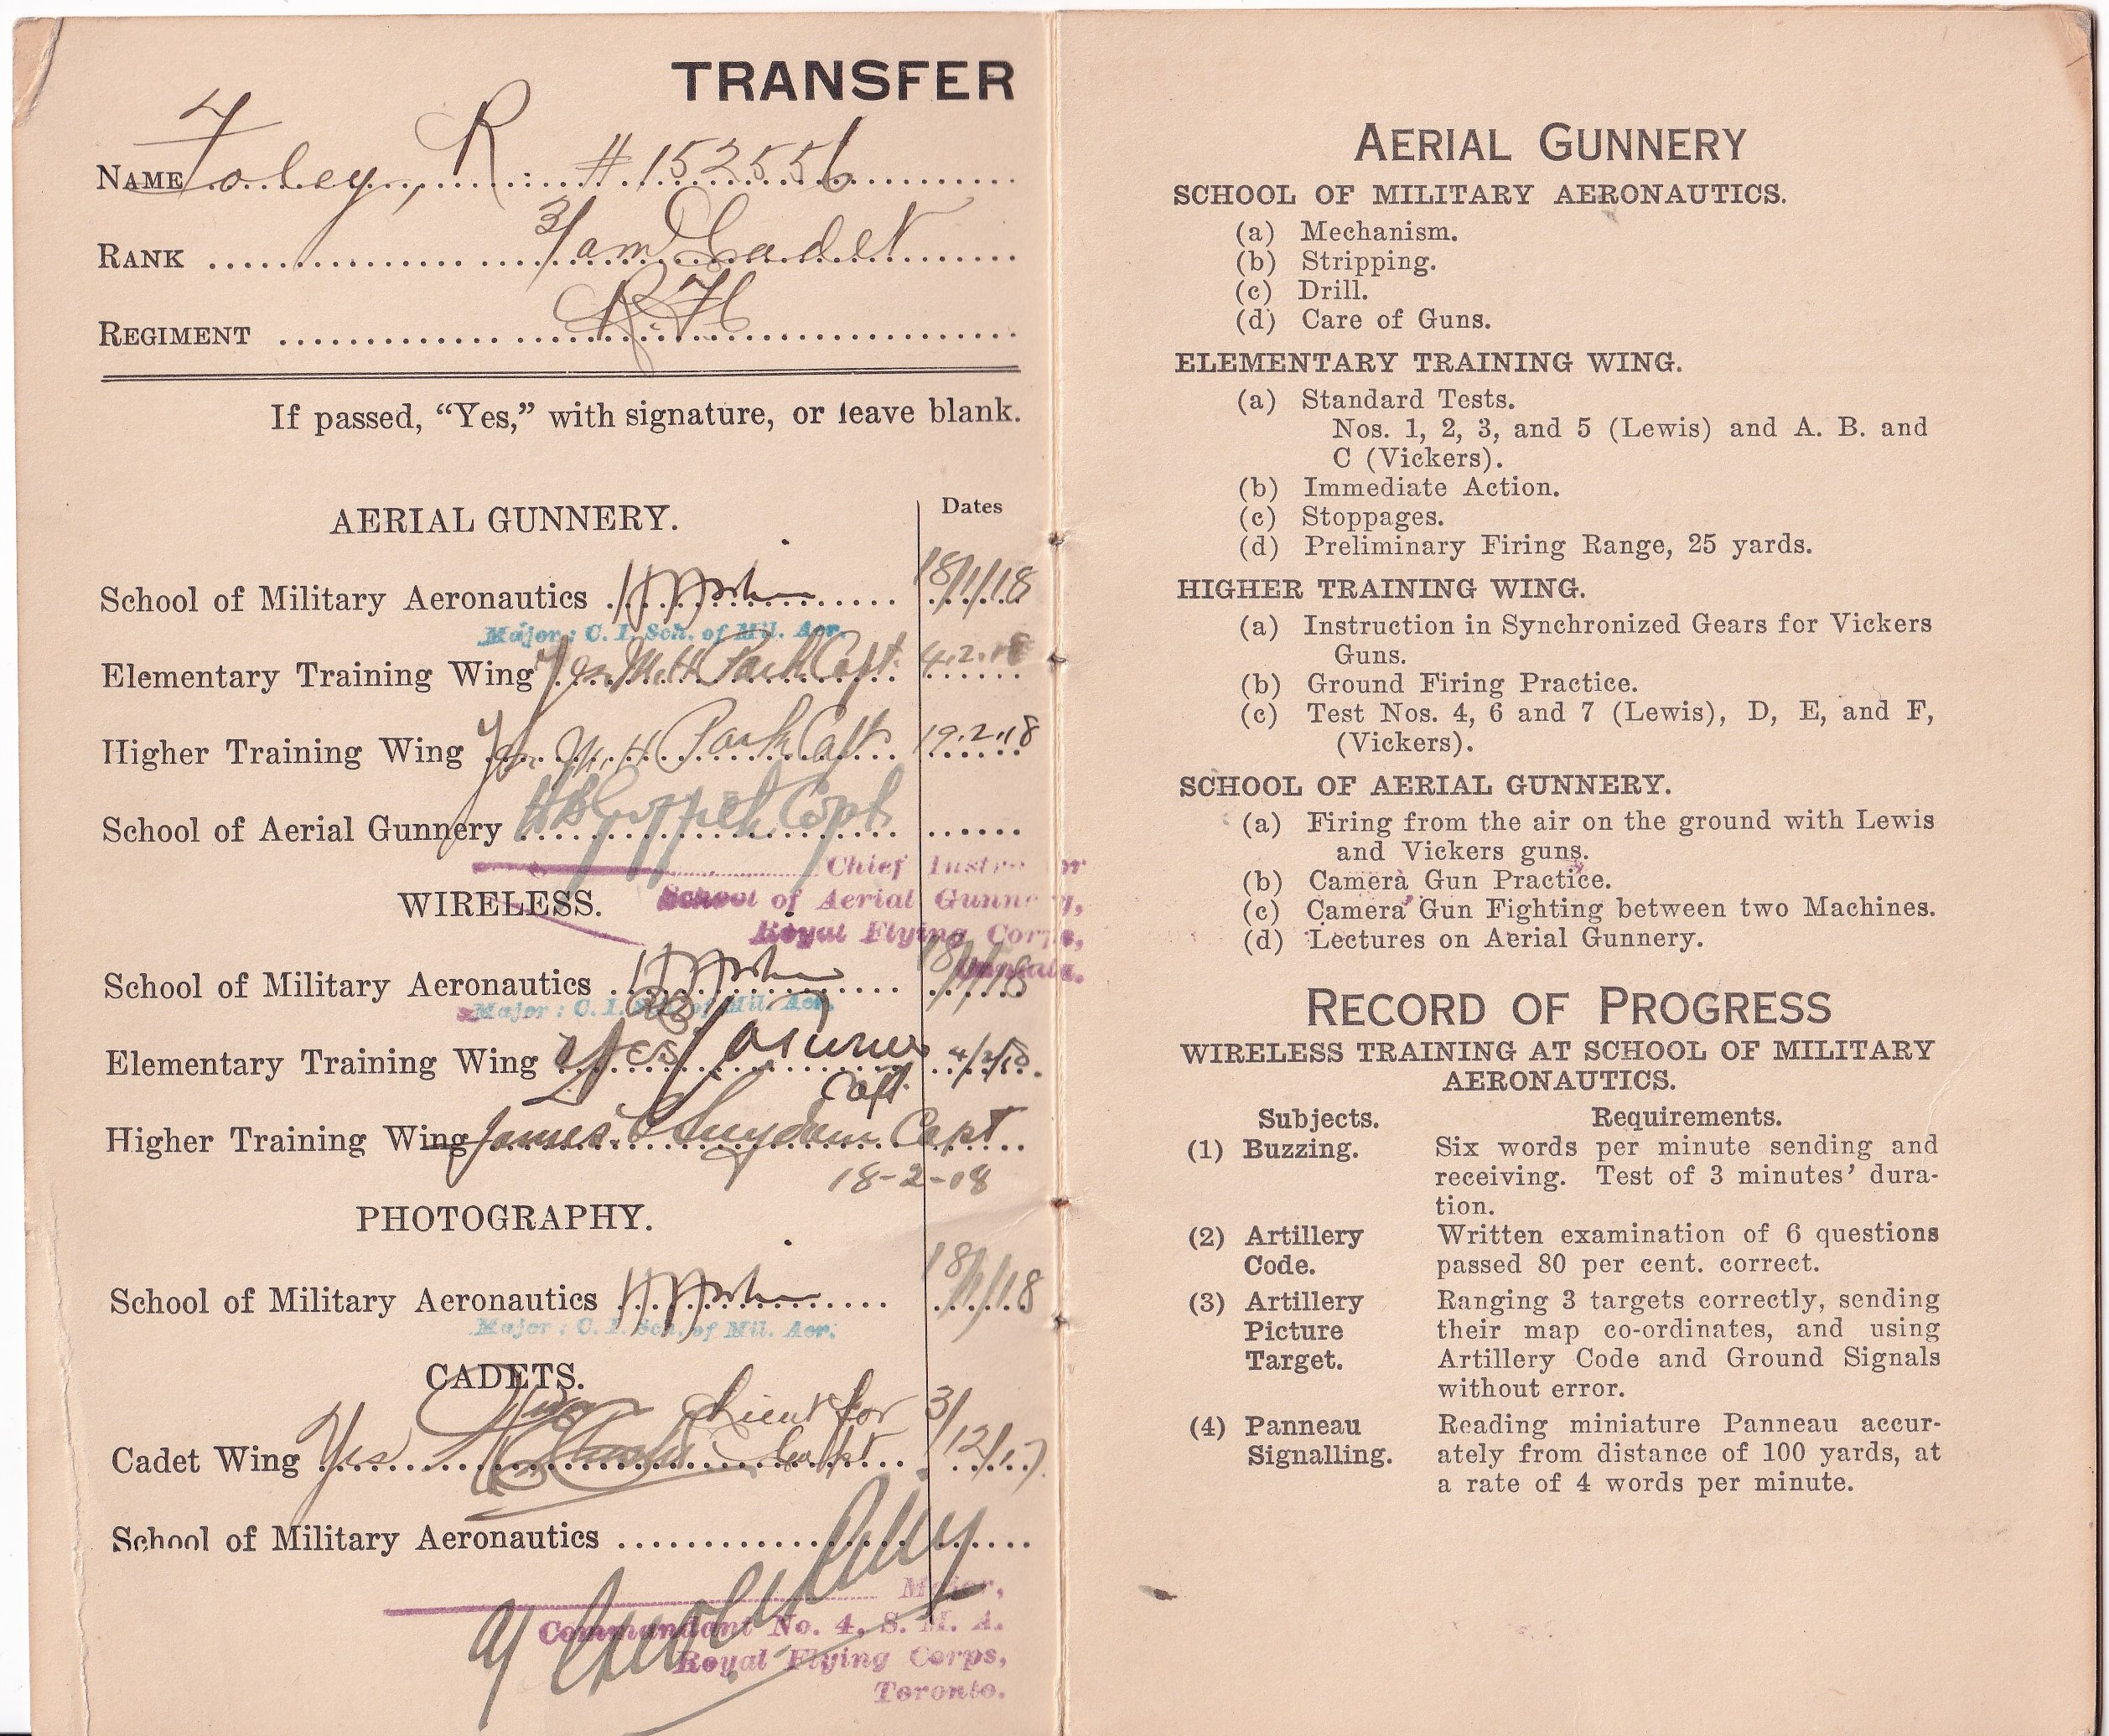 TRANSFER
NAME Foley, R. # 152556
RANK 3/am Cadet
REGIMENT
If passed, “Yes,” with signature, or leave blank.
AERIAL GUNNERY. Dates
School of Military Aeronautics 18/1/18
Major: C. I. Sch. of Mil. Aer.
Elementary Training Wing Yes M. H. Park Capt. 4.2.18
Higher Training Wing Yes M. H. Park Capt 19.2.18
School of Aerial Gunnery Capt
Chief Instructor
WIRELESS. School of Aerial Gunnery,
Royal Flying Corps,
Canada.
School of Military Aeronautics 18/1/18
Major: C. I. Sch. of Mil. Aer.
Elementary Training Wing Yes 4/2/18
Capt.
Higher Training Wing James Suydam Capt
18-2-18
PHOTOGRAPHY.
School of Military Aeronautics 18/1/18
Major: C. I. Sch. of Mil. Aer.
CADETS.
Lieut for
Cadet Wing Yes Capt 3/12/17
School of Military Aeronautics
Major,
Commandant No. 4. S. M. A.
Royal Flying Corps,
Toronto.
AERIAL GUNNERY
SCHOOL OF MILITARY AERONAUTICS.
(a) Mechanism.
(b) Stripping.
(c) Drill.
(d) Care of Guns.
ELEMENTARY TRAINING WING.
(a) Standard Tests.
Nos. 1, 2, 3, and 5 (Lewis) and A. B. and
C (Vickers).
(b) Immediate Action.
(c) Stoppages.
(d) Preliminary Firing Range, 25 yards.
HIGHER TRAINING WING.
(a) Instruction in Synchronized Gears for Vickers
Guns.
(b) Ground Firing Practice.
(c) Test Nos. 4, 6 and 7 (Lewis), D, E, and F,
(Vickers).
SCHOOL OF AERIAL GUNNERY.
(a) Firing from the air on the ground with Lewis
and Vickers guns.
(b) Camera Gun Practice.
(c) Camera Gun Fighting between two Machines.
(d) Lectures on Aerial Gunnery.
RECORD OF PROGRESS
WIRELESS TRAINING AT SCHOOL OF MILITARY
AERONAUTICS.
Subjects. Requirements.
(1) Buzzing. Six words per minute sending and
receiving. Test of 3 minutes’ dura-
tion.
(2) Artillery Written examination of 6 questions
Code. passed 80 per cent. correct.
(3) Artillery Ranging 3 targets correctly, sending
Picture their map co-ordinates, and using
Target. Artillery Code and Ground Signals
without error.
(4) Panneau Reading miniature Panneau accur-
Signalling. ately from distance of 100 yards, at
a rate of 4 words per minute.